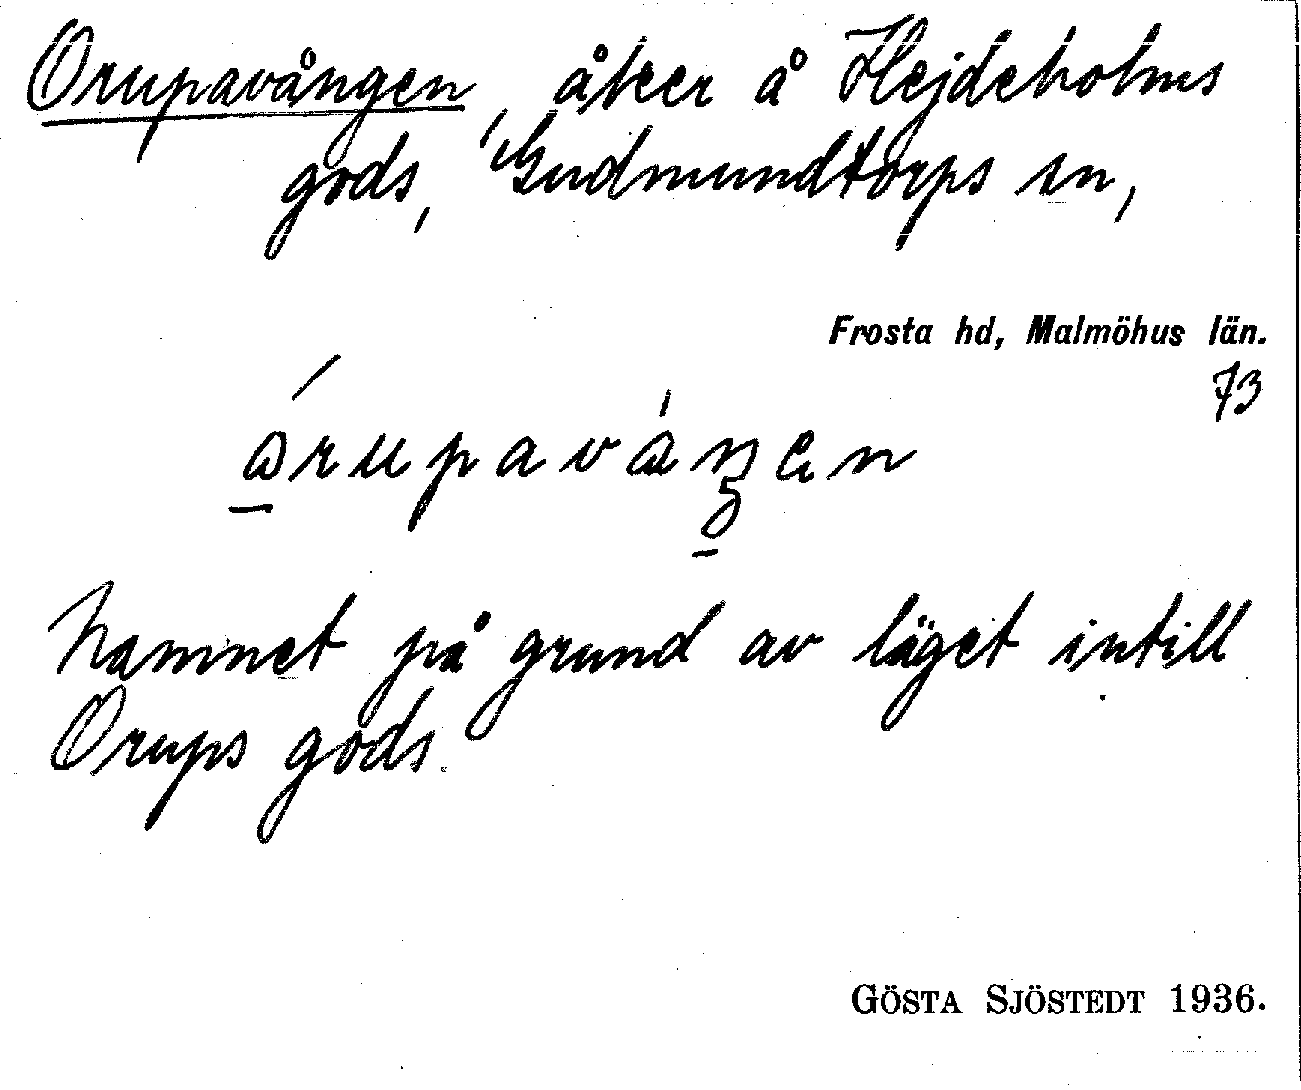 Orupavången, åker å Hejdeholms
gods, Gudmundtorps sn,
Frosta hd, Malmöhus län.
73
Namnet på grund av läget intill
Orups gods.
GÖSTA SJÖSTEDT 1936.